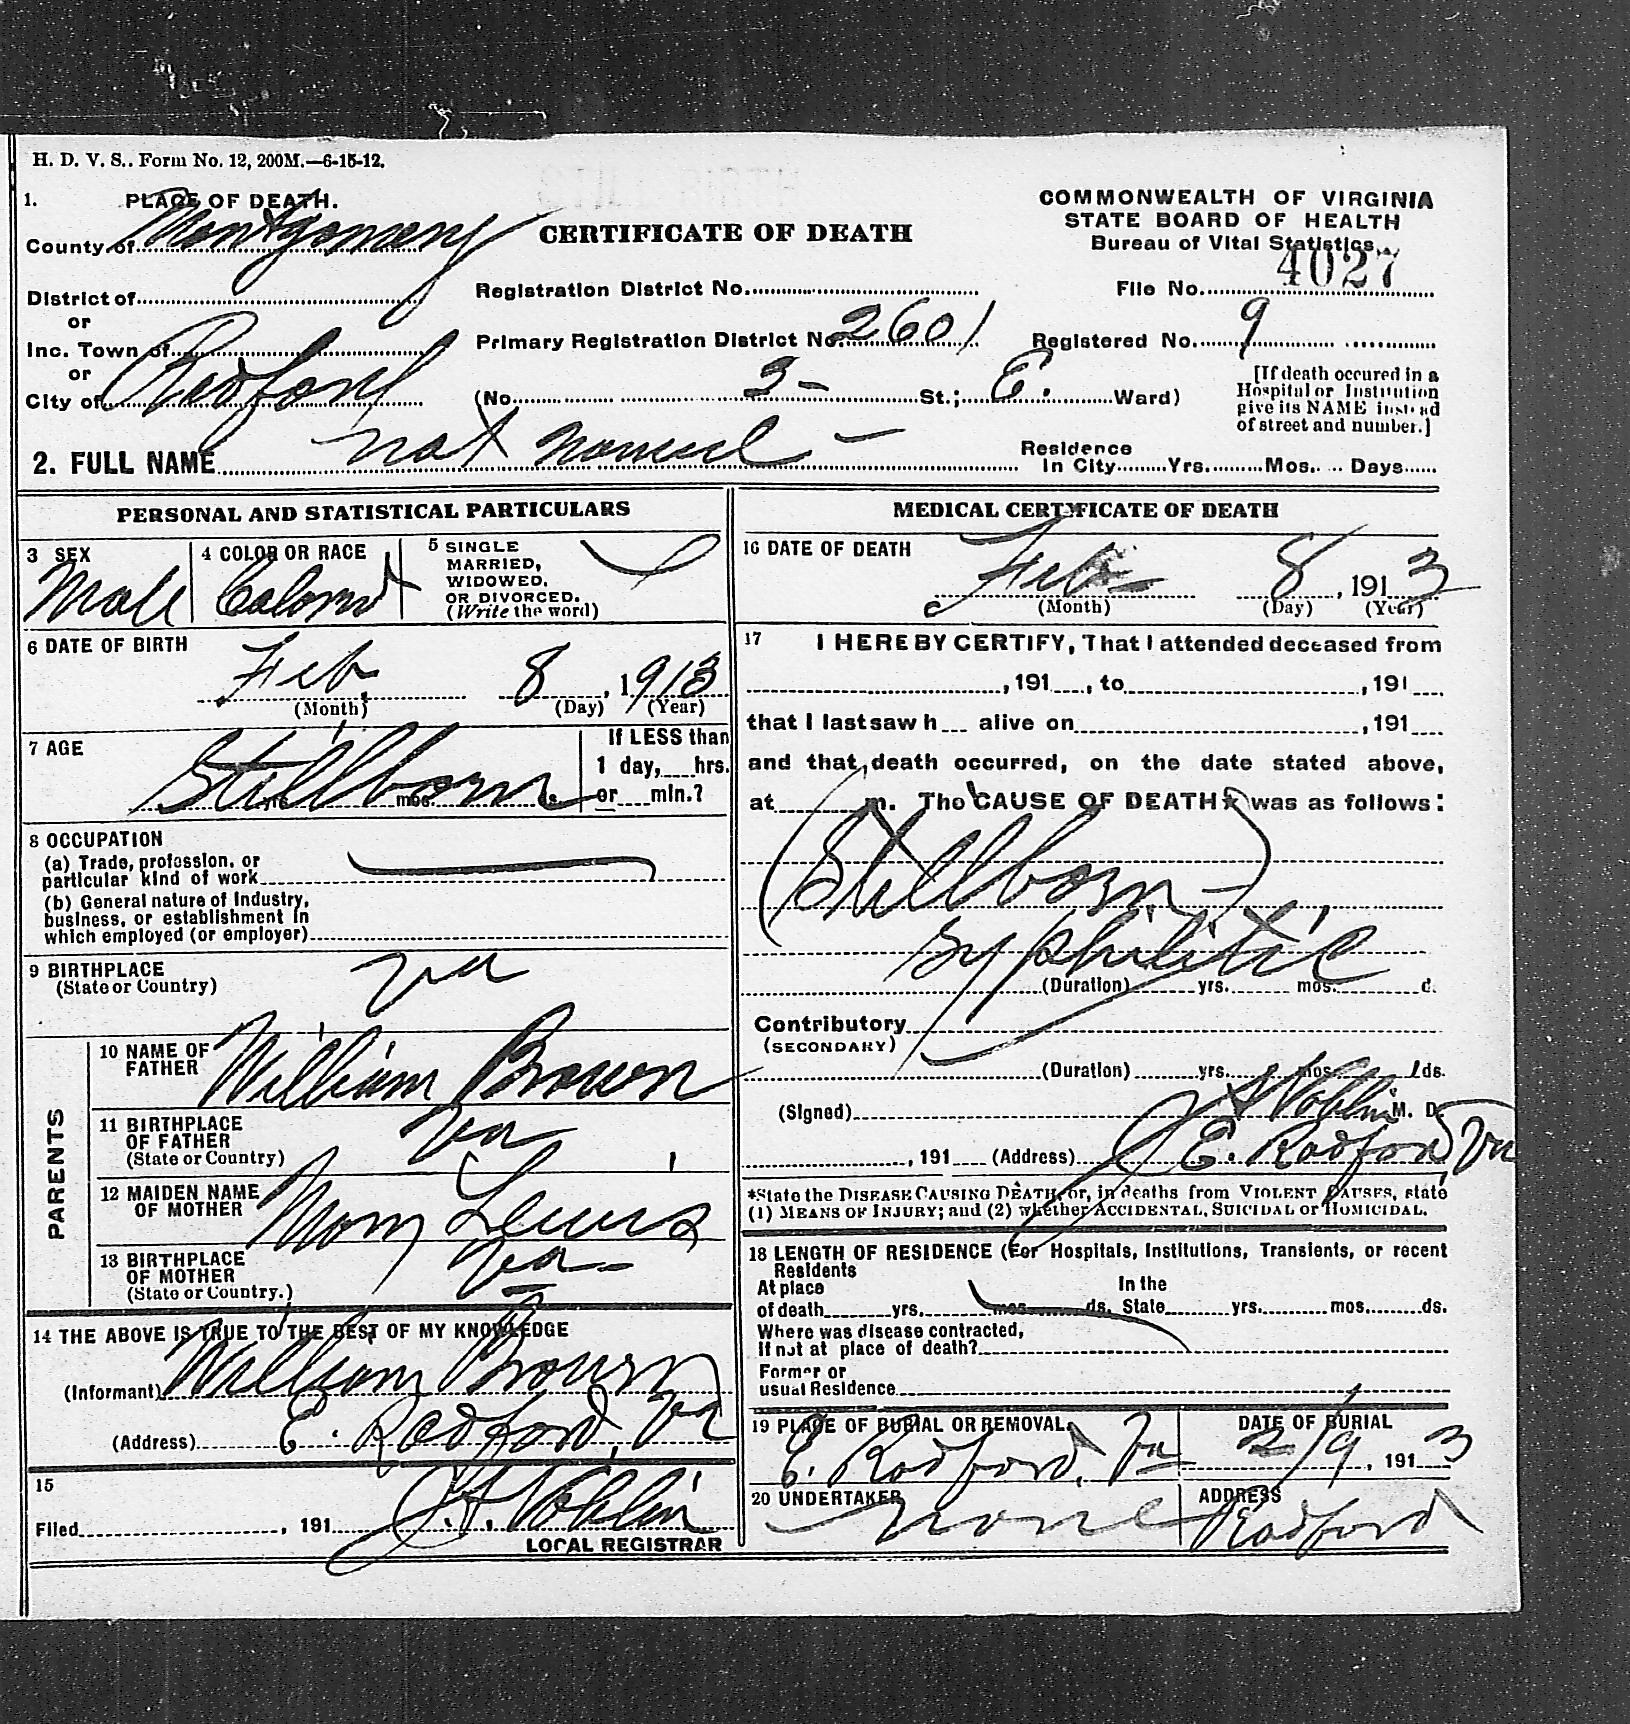 H. D. V. S.. Form No. 12, 200M.—6-15-12.
1. PLACE OF DEATH.
County of Montgomery
District of
or
Inc. Town of
or
City of Radford
CERTIFICATE OF DEATH
Registration District No.
Primary Registration District No. 2601
(No. 3- St.; E. Ward)
COMMONWEALTH OF VIRGINIA
STATE BOARD OF HEALTH
Bureau of Vital Statistics
File No. 4027
Registered No. 9
[If death occured in a
Hospital or Institution
give its NAME instead
of street and number.]
2. FULL NAME not named -
Residence
In City Yrs. Mos. Days
PERSONAL AND STATISTICAL PARTICULARS
3 SEX
Male
4 COLOR OR RACE
Colored
5 SINGLE
MARRIED,
WIDOWED,
OR DIVORCED.
(Write the word)
6 DATE OF BIRTH
Feb. 8, 1913
(Month) (Day) (Year)
7 AGE
Stillborn
yrs. mos. ds.
If LESS than
1 day, hrs.
or min.?
8 OCCUPATION
(a) Trade, profession, or
particular kind of work
(b) General nature of Industry,
business, or establishment in
which employed (or employer)
9 BIRTHPLACE
(State or Country)
Va
PARENTS
10 NAME OF
FATHER
William Brown
11 BIRTHPLACE
OF FATHER
(State or Country)
Va
12 MAIDEN NAME
OF MOTHER
Mary Lewis
13 BIRTHPLACE
OF MOTHER
(State or Country.)
Va-
14 THE ABOVE IS TRUE TO THE BEST OF MY KNOWLEDGE
(Informant) William Brown
(Address) E. Radford, Va
15
Filed , 191
LOCAL REGISTRAR
MEDICAL CERTIFICATE OF DEATH
16 DATE OF DEATH
Feb 8, 1913
(Month) (Day) (Year)
17 I HEREBY CERTIFY, That I attended deceased from
, 191 , to , 191
that I last saw h alive on , 191
and that death occurred, on the date stated above,
at m. The CAUSE OF DEATH* was as follows:
(Stillborn-)
Syphilitic
(Duration) yrs. mos. d.
Contributory
(SECONDARY)
(Duration) yrs. mos. ds.
(Signed) M. D.
, 191 (Address) E. Radford Va
*State the DISEASE CAUSING DEATH, or, in deaths from VIOLENT CAUSES, state
(1) MEANS OF INJURY; and (2) whether ACCIDENTAL, SUICIDAL or HOMICIDAL.
18 LENGTH OF RESIDENCE (For Hospitals, Institutions, Transients, or recent
Residents
At place
of death yrs. mos. ds.
In the
State yrs. mos. ds.
Where was disease contracted,
If not at place of death?
Former or
usual Residence
19 PLACE OF BURIAL OR REMOVAL
E. Radford, Va
DATE OF BURIAL
2/9, 1913
20 UNDERTAKER
none
ADDRESS
Radford